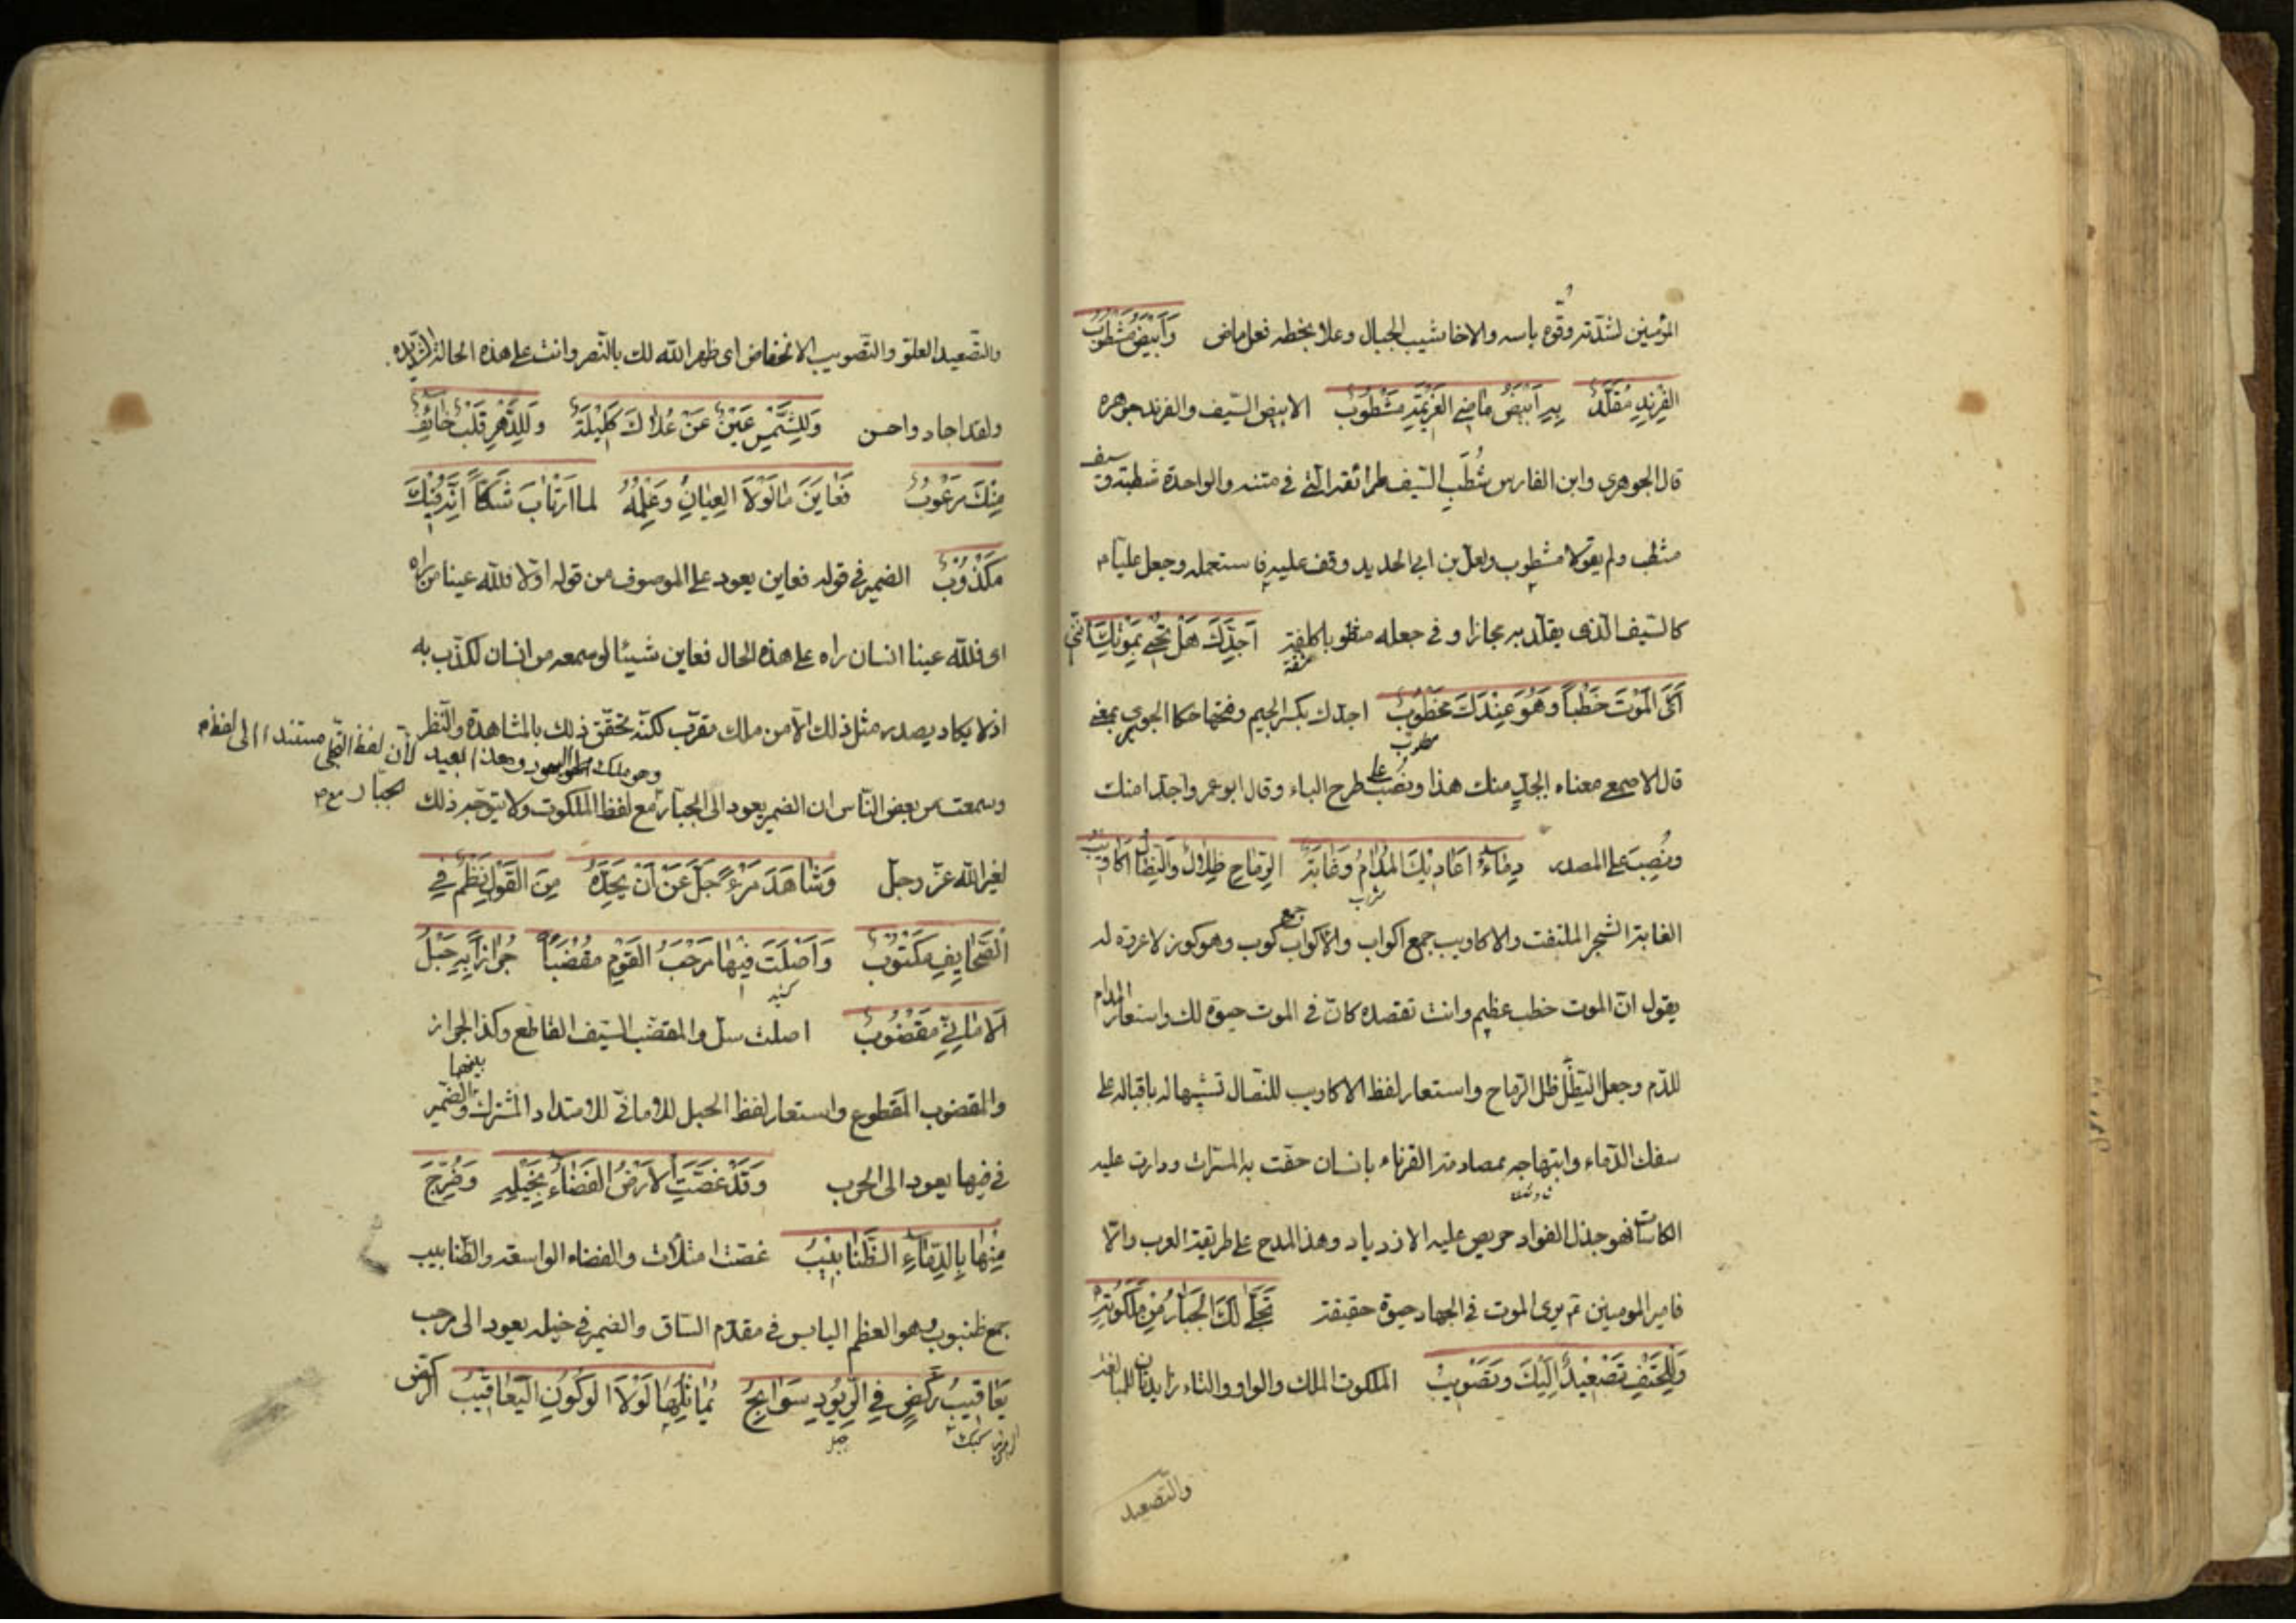 المؤمنين لشدته وقوة باسه والاخاشيب الجبال وعلا بخطه فعل ماض وَاَبْيَضُ مَشْطُوبُ
الفِرِنْدِ مُقَلَّدٌ بِهِ اَبْيَضُ مَاضِى العَزِيمَةِ مَشْطُوبُ الابيض السّيف والفرند جوهره
قال الجوهرى وابن الفارس شُطَب السّيف طرائقه الّتى فى متنه والواحدة شطبة وسيف
مشطّب ولم يقولا مشطوب ولعل بن ابى الحديد وقف عليه فاستعمله وجعل عليّا م
كالسّيف الّذى يقلّد به مجازا وفى جعله
اَجِدَّكَ هَلْ تَحْيَى بِمَوْتِكَ اِنَّنِى
اَرَى المَوْتَ خَطْباً وَهُوَ عِنْدَكَ مَخْطُوبُ اجدّك بكسر الجيم وفتحها حكا الجوهرى بمعنى
مطلوب
قال الاصمعى معناه ابجدّ منك هذا ونصب على طرح الباء وقال ابو عمرو اجدّا منك
ونُصِبَ على المصدر دِمَاءُ اَعَادِيكَ المُدَامُ وَغَابَةُ الرِمَاحِ ظِلَالٌ وَالنِصَالُ اَكَاوِيبُ
شراب
الغابة الشجر الملتفت والاكاويب جمع اكواب والاكواب جمع كوب وهو كوز لا عروة له
يقول انّ الموت خطب عظيم وانت تقصده كانّ فى الموت حيوة لك واستعار المدام
للدّم وجعل التظلّل ظل الرّماح واستعار لفظ الاكاويب للنّصال تشبيها له باقباله على
سفك الدّماء وابتهاجه بمصادمة القرناء بانسان حفّت به المسرّات ودارت عليه
الكاسات فهو جذل الفواد حريص عليه الازدياد وهذا المدح على طريقة العرب والّا
فامير المومنين م يرى الموت فى الجهاد حيوة حقيقة تَجَلَّى لَكَ الجَبَّارُ مِنْ مَلَكُوتِهِ
وَلِلْحَتْفِ تَصْعِيدٌ اِلَيْكَ وَتَصْوِيبُ الملكوت الملك والواو والتاء زايدتان للمبالغة
والتصعيد
والتّصعيد العلوّ والتّصويب الانخفاض اى ظهر الله لك بالنّصر وانت على هذه الحالة الشديدة
ولقد اجاد واحسن وَلِلشَّمْسِ عَيْنٌ عَنْ عُلَاكَ كَلِيلَةٌ وَلِلدَّهْرِ قَلْبٌ خَائِفٌ
مِنْكَ مَرْعُوبُ فَعَايَنَ مَا لَوْلَا العِيَانُ وَعِلْمُهُ لما ارْتَابَ شَكّاً اَنَّهُ فِيْكَ
مَكْذُوبُ الضمير فى قوله فعاين يعود على الموصوف من قوله اوّلا فللّه عينا من راه
اى فللّه عينا انسان راه على هذه الحال فعاين شيئا لو سمعه من انسان لكذّب به
اذ لا يكاد يصدر مثل ذلك الّا من ملك مقرّب لكنّه تحقّق ذلك بالمشاهدة والنّظر
وهذا بعيد لانّ لفظ التجلّى مستندا الى لفظ
وسمعت من بعض النّاس ان الضمير يعود الى الجبّار مع لفظ الملكوت ولا يتوجّه ذلك
لغير الله عزّ وجلّ وَشَاهَدَ مَرْءً جَلَّ عَنْ اَنْ يَحُدَّهُ مِنَ القَوْلِ نَظْمٌ فِى
الصَّحَايِفِ مَكْتُوبُ وَاَصْلَتَ فِيْهَا مَرْحَبُ القَوْمِ مِقْضَباً جُرَازاً بِهِ حَبْلُ
الاَمَانِىِّ مَقْضُوبُ اصلت سلّ والمقضب السّيف القاطع وكذا الجراز
والمقضوب المقطوع واستعار لفظ الحبل للامانى للامتداد المشترك بينهما والضّمير
فى فيها يعود الى الحرب وَقَدْ غَصَّتِ الاَرْضُ الفَضَاءُ بِخَيْلِهِ وَضُرِّجَ
مِنْهَا بِالدِمَاءِ الظَنَابِيْبُ غصّت امتلأت والفضاء الواسعة والظنابيب
جمع ظنبوب وهو العظم اليابس فى مقدّم السّاق والضمير فى خيله يعود الى مرحب
يَعَاقِيبُ رَكْضٍ فِى الرُيُودِ سَوَابِحٌ يُمَاثِلُهَا لَوْلَا الوُكُونِ اليَعَاقِيبُ الركض
كبك
جبل